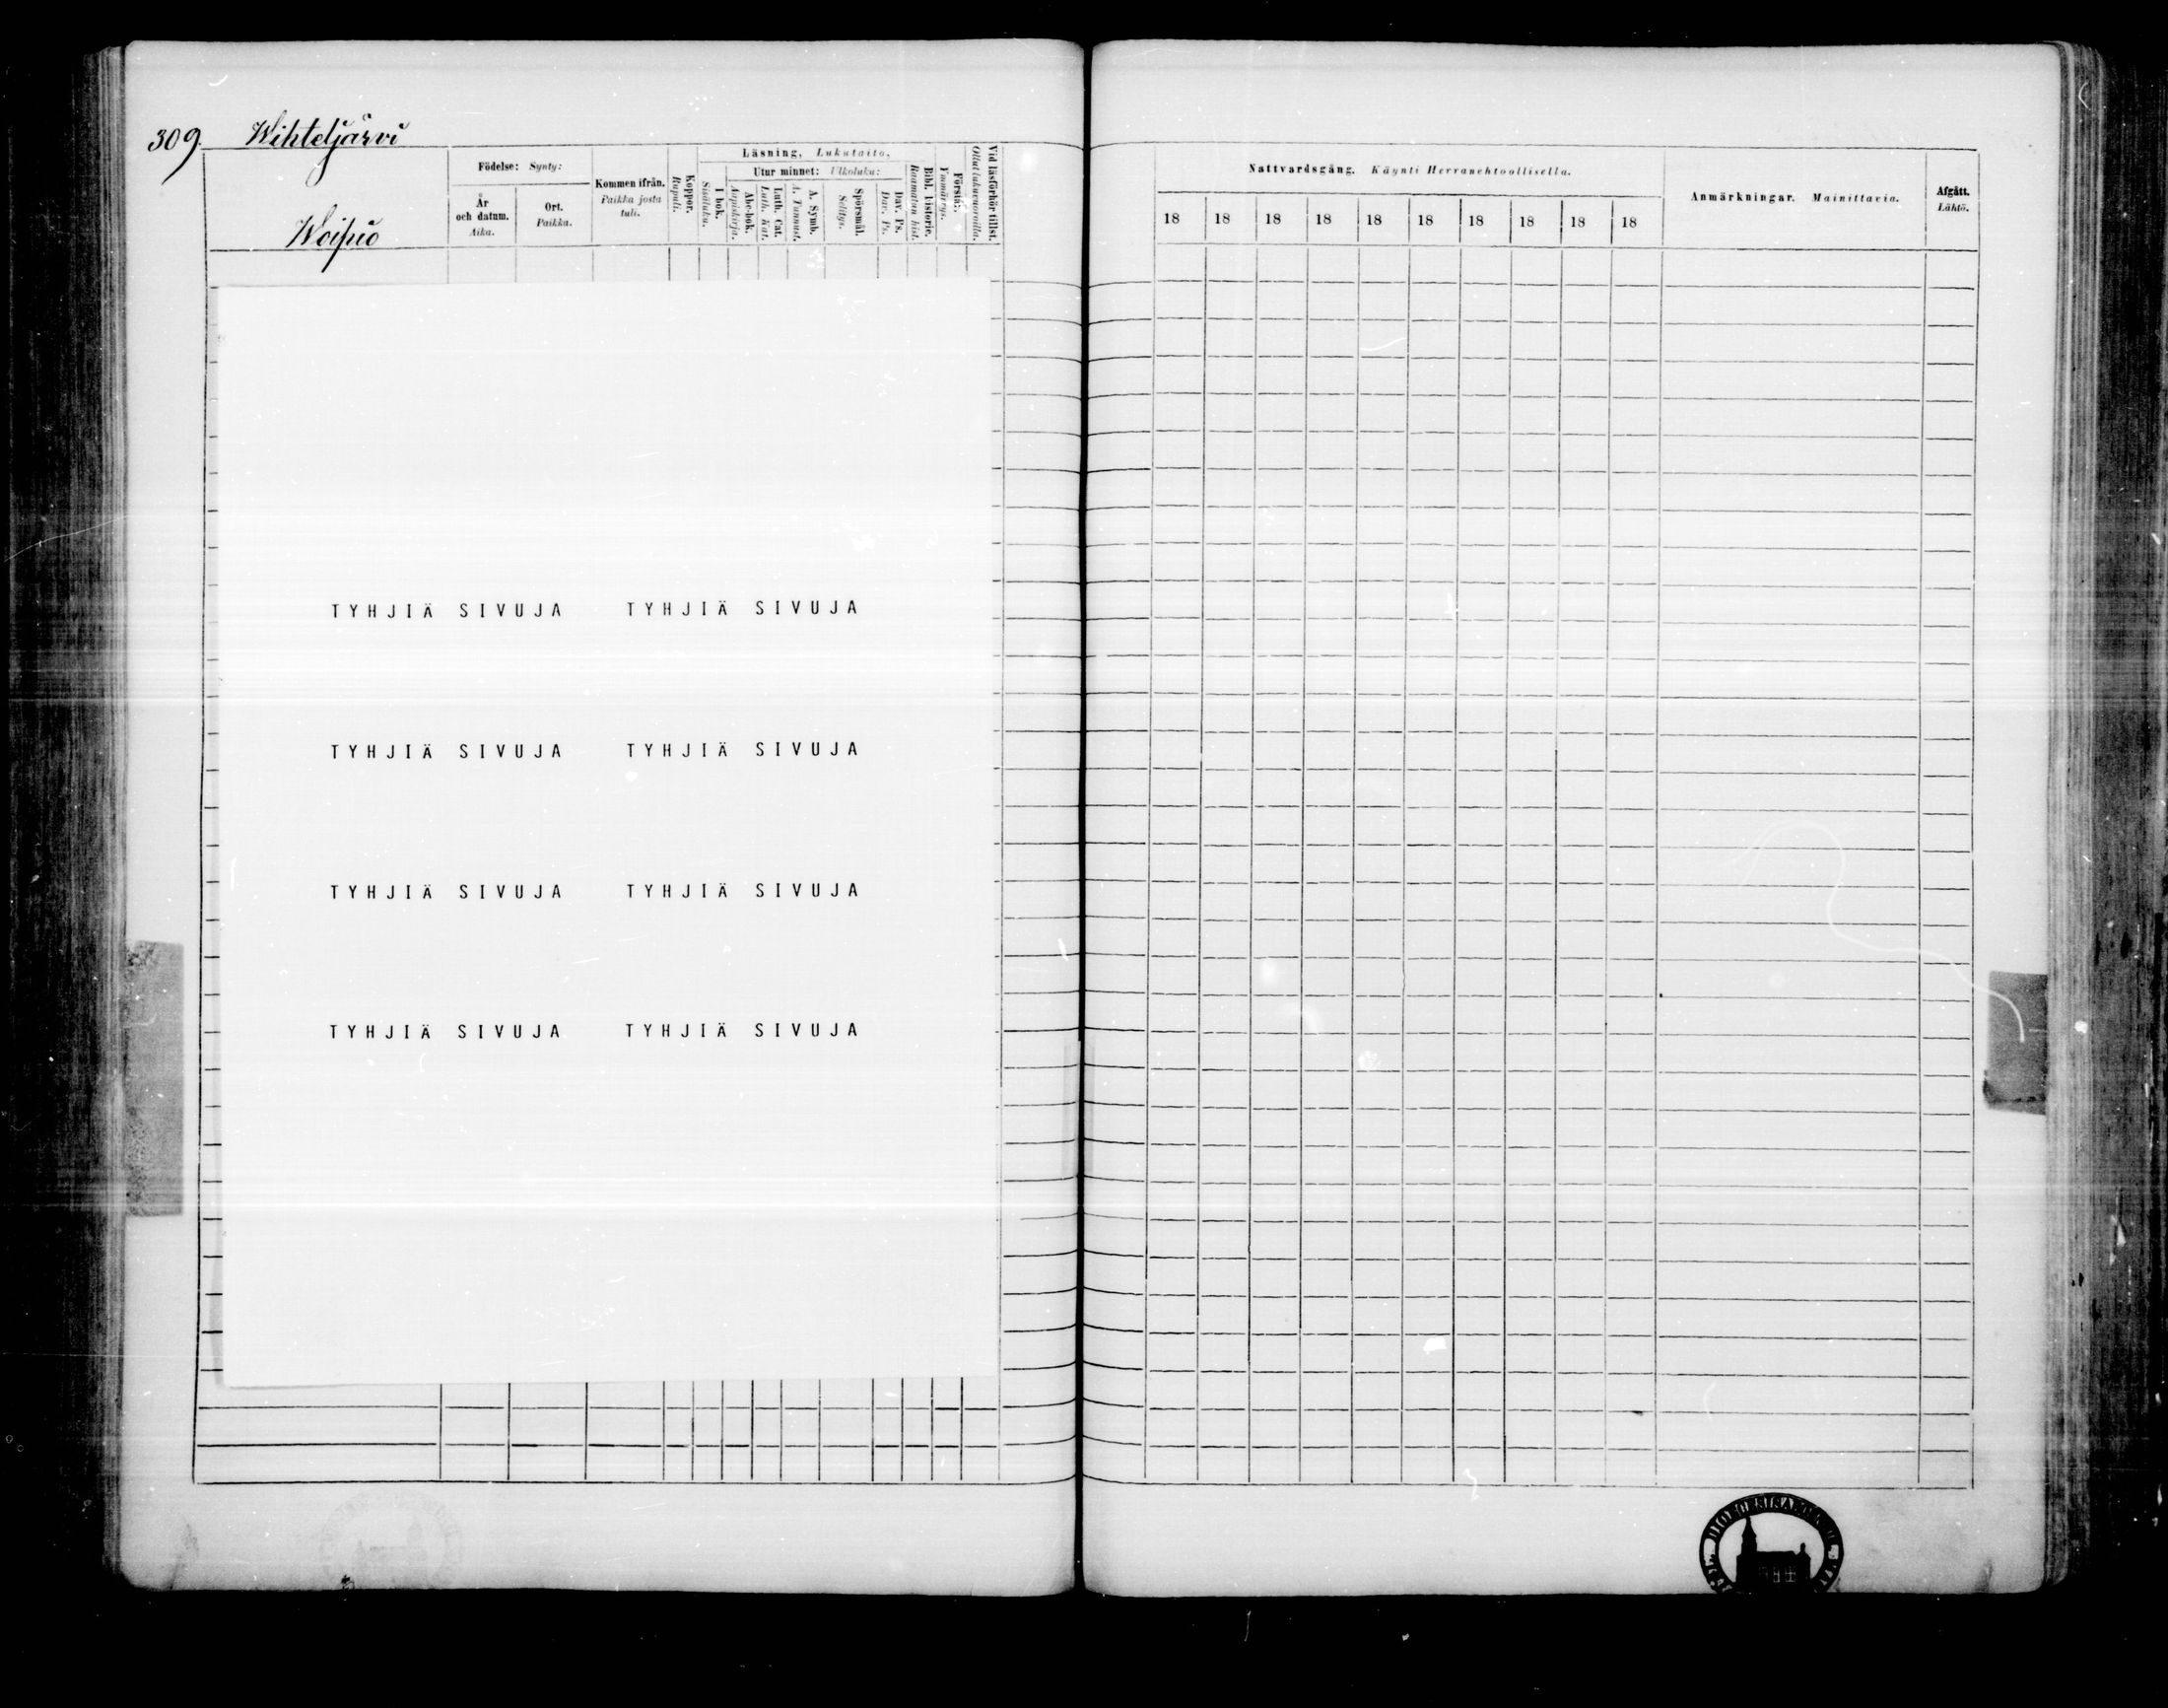 309. Wihteljärvi
Woipio
Födelse: Synty:
År och datum. Aika.
Ort. Paikka.
Kommen ifrån. Paikka josta tuli.
Koppor. Rupuli.
Läsning, Lukutaito,
I bok. Sisäluku.
Utur minnet: Ulkoluku:
Abc-bok. Aapiskirja.
Luth. Cat. Luth. Kat.
A. Symb. A. Tunnust.
Spörsmål. Selitys.
Dav. Ps. Dav. Ps.
Bibl. historie. Raamatun hist.
Förstå. Ymmärrys.
Vid läsförhör tillst. Ollut lukuvuoroilla.
Nattvardsgång. Käynti Herranehtoollisella.
18 18 18 18 18 18 18 18 18 18
Anmärkningar. Mainittavia.
Afgått. Lähtö.
TYHJIÄ SIVUJA TYHJIÄ SIVUJA
TYHJIÄ SIVUJA TYHJIÄ SIVUJA
TYHJIÄ SIVUJA TYHJIÄ SIVUJA
TYHJIÄ SIVUJA TYHJIÄ SIVUJA